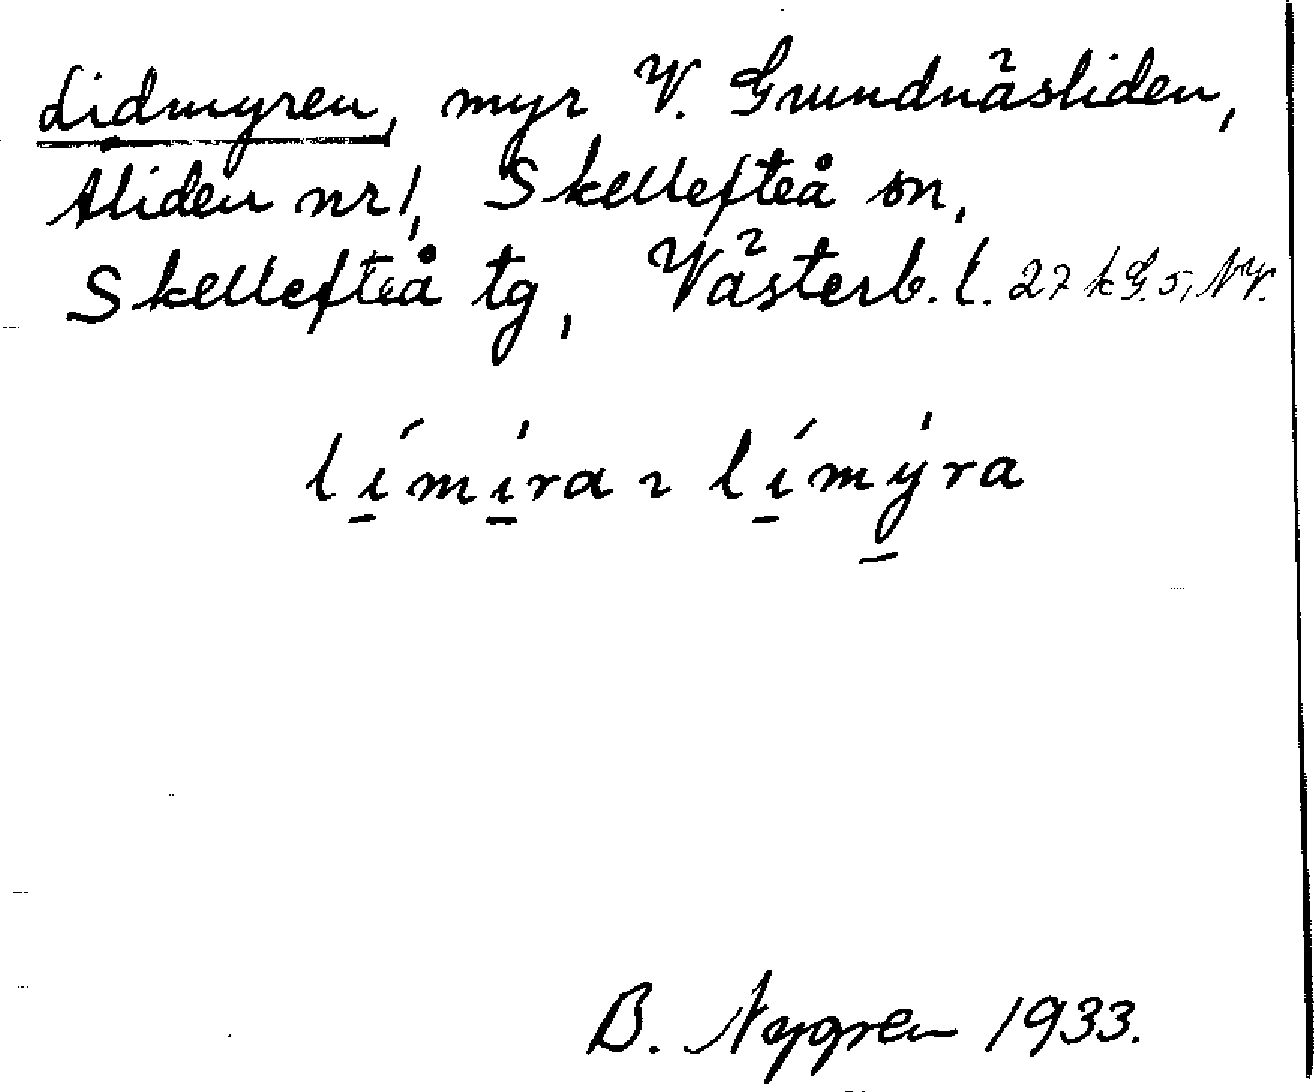 Lidmyren, myr V. Grundnäsliden,
Aliden nr 1, Skellefteå sn,
Skellefteå tg, Västerb. l. 27 k G. 5, NV.
límíra ~ límýra
B. Nygren 1933.